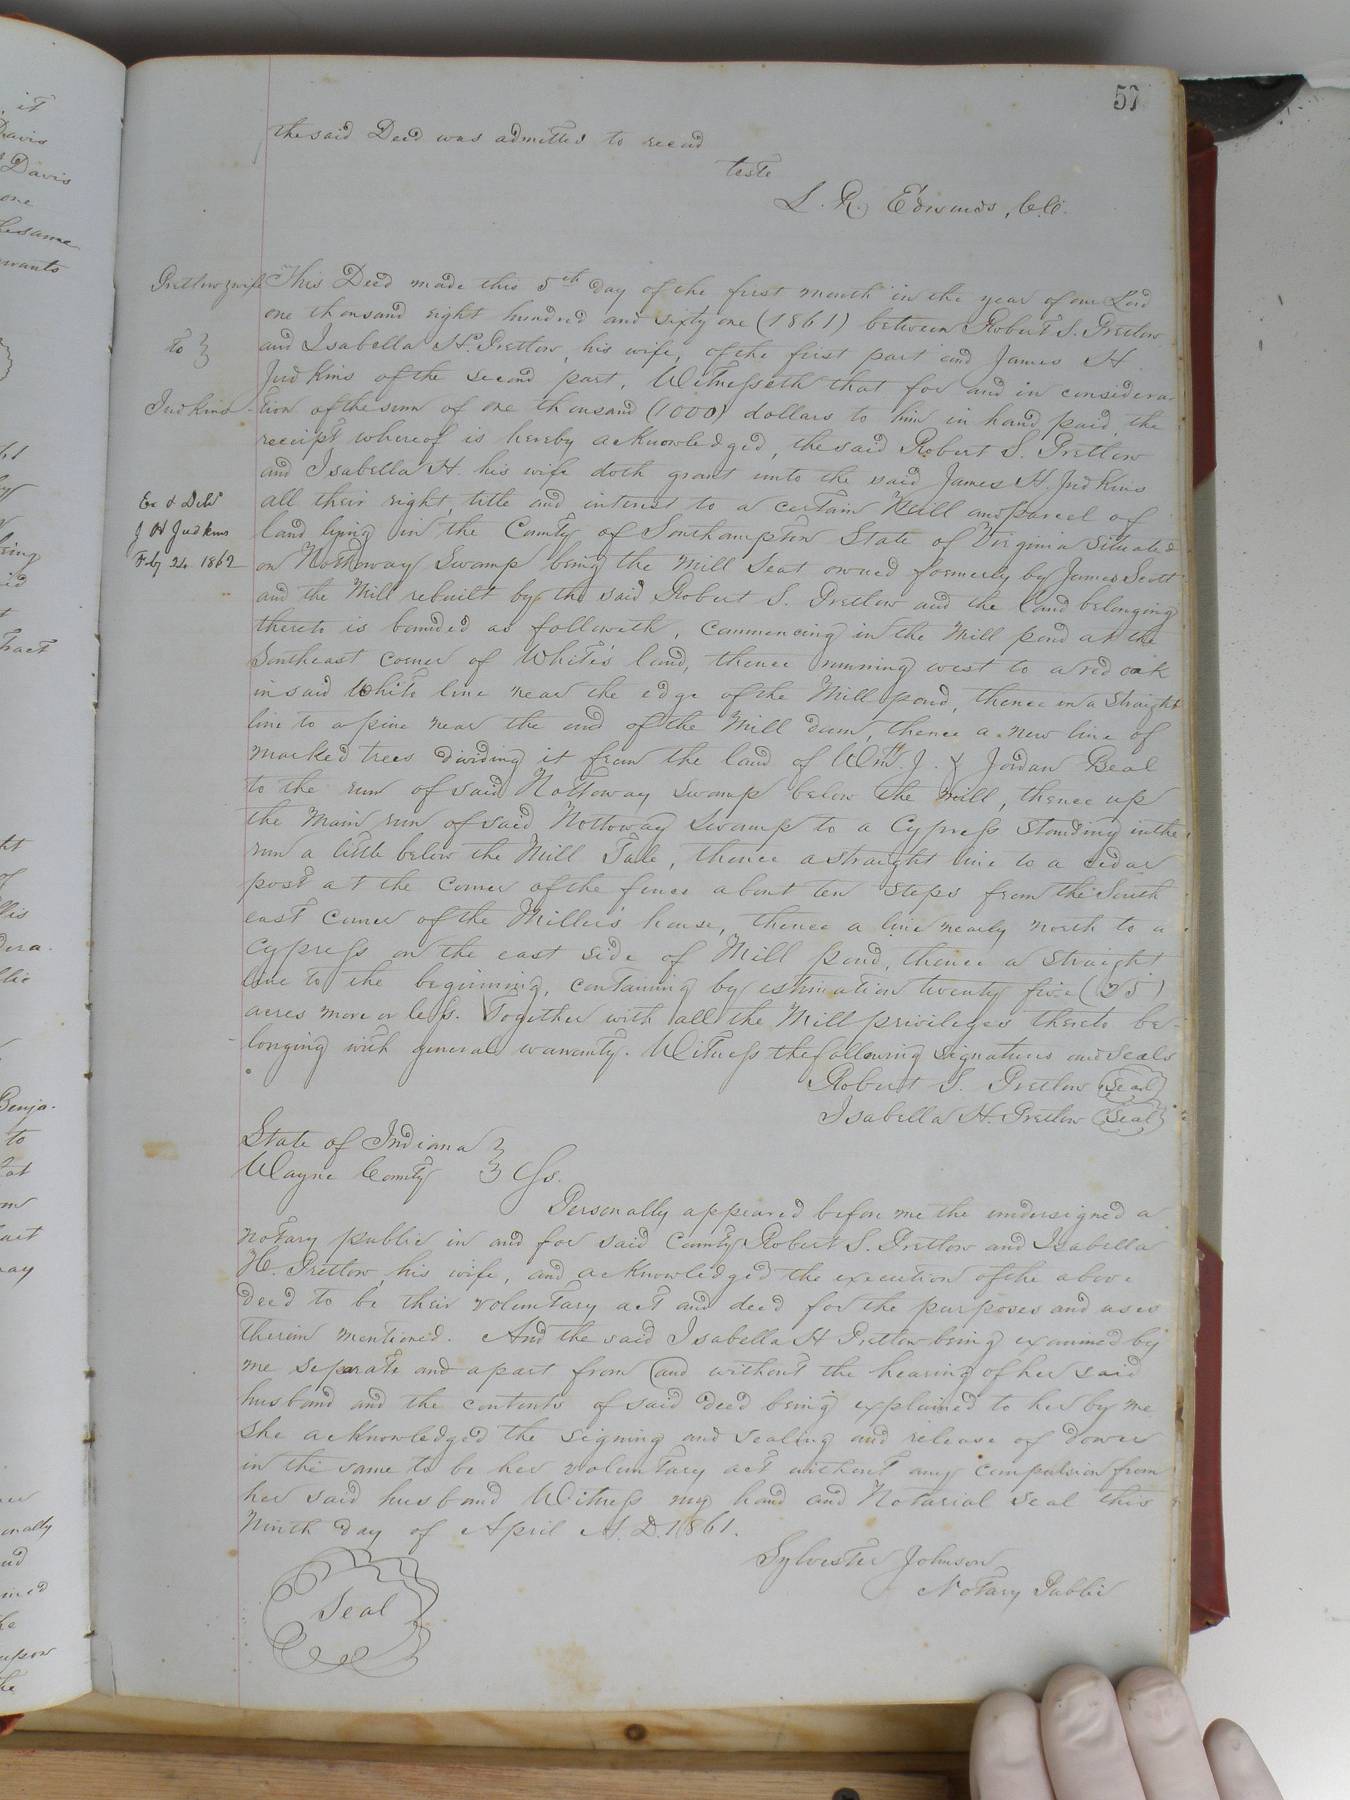 57
the said Deed was admitted to record
teste
L. R. Edwards, C.C.
Pretlow & wife
to
Judkins
Ex & Deld
J H Judkins
Feby 24 1862
This Deed made this 5th day of the first month in the year of our Lord
one thousand eight hundred and sixty one (1861) between Robert S. Pretlow
and Isabella H. Pretlow, his wife, of the first part and James H.
Judkins of the second part, Witnesseth that for and in considera-
tion of the sum of one thousand (1000) dollars to him in hand paid, the
receipt whereof is hereby acknowledged, the said Robert S. Pretlow
and Isabella H. his wife doth grant unto the said James H. Judkins
all their right, title and interest to a certain Mill and parcel of
land lying in the County of Southampton State of Virginia situated
on Nottoway Swamp being the Mill Seat owned formerly by James Scott
and the Mill rebuilt by the said Robert S. Pretlow and the land belonging
thereto is bounded as followeth, Commencing in the Mill pond at the
Southeast corner of White's land, thence running west to a red oak
in said White line near the edge of the Mill pond, thence in a straight
line to a pine near the end of the Mill dam, thence a new line of
marked trees dividing it from the land of Wm. J. & Jordan Beal
to the run of said Nottoway Swamp below the Mill, thence up
the Main run of said Nottoway Swamp to a Cypress standing in the
run a little below the Mill Tale, thence a straight line to a cedar
post at the corner of the fence about ten steps from the South
east corner of the Miller's house, thence a line nearly north to a
Cypress on the east side of Mill pond, thence a straight
line to the beginning, containing by estimation twenty five (25)
acres more or less. Together with all the Mill privileges thereto be-
longing with general warranty. Witness the following signatures and seals
Robert S. Pretlow Seal
Isabella H. Pretlow Seal
State of Indiana
Wayne County Ss.
Personally appeared before me the undersigned a
notary public in and for said County Robert S. Pretlow and Isabella
H. Pretlow, his wife, and acknowledged the execution of the above
deed to be their voluntary act and deed for the purposes and uses
therein mentioned. And the said Isabella H Pretlow being examined by
me separate and apart from (and without the hearing of her said
husband and the contents of said deed being explained to her by me
she acknowledged the signing and sealing and release of dower
in the same to be her voluntary act without any compulsion from
her said husband Witness my hand and Notarial Seal this
Ninth day of April A. D. 1861.
Sylvester Johnson
Notary Public
Seal